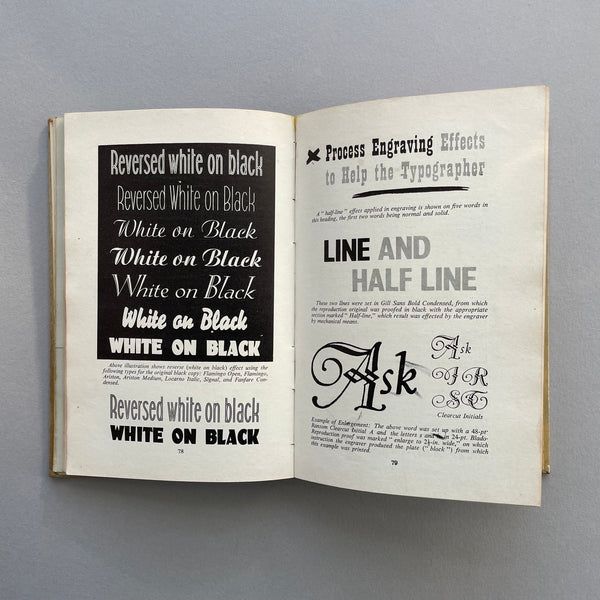 Reversed white on black
Reversed White on Black
White on Black
White on Black
White on Black
White on Black
WHITE ON BLACK
Above illustration shows reverse (white on black) effect using the
following types for the original black copy: Flamingo Open, Flamingo,
Ariston, Ariston Medium, Locarno Italic, Signal, and Fanfare Con-
densed.
Reversed white on black
WHITE ON BLACK
78
Process Engraving Effects
to Help the Typographer
A "half-line" effect applied in engraving is shown on five words in
this heading, the first two words being normal and solid.
LINE AND
HALF LINE
These two lines were set in Gill Sans Bold Condensed, from which
the reproduction original was proofed in black with the appropriate
section marked "Half-line," which result was effected by the engraver
by mechanical means.
Ask
Ask
I R
S T
Clearcut Initials
Example of Enlargement: The above word was set up with a 48-pt
Ransom Clearcut Initial A and the letters s and k in 24-pt. Blado-
Reproduction proof was marked "enlarge to 2½-in. wide," on which
instruction the engraver produced the plate ("block") from which
this example was printed.
79